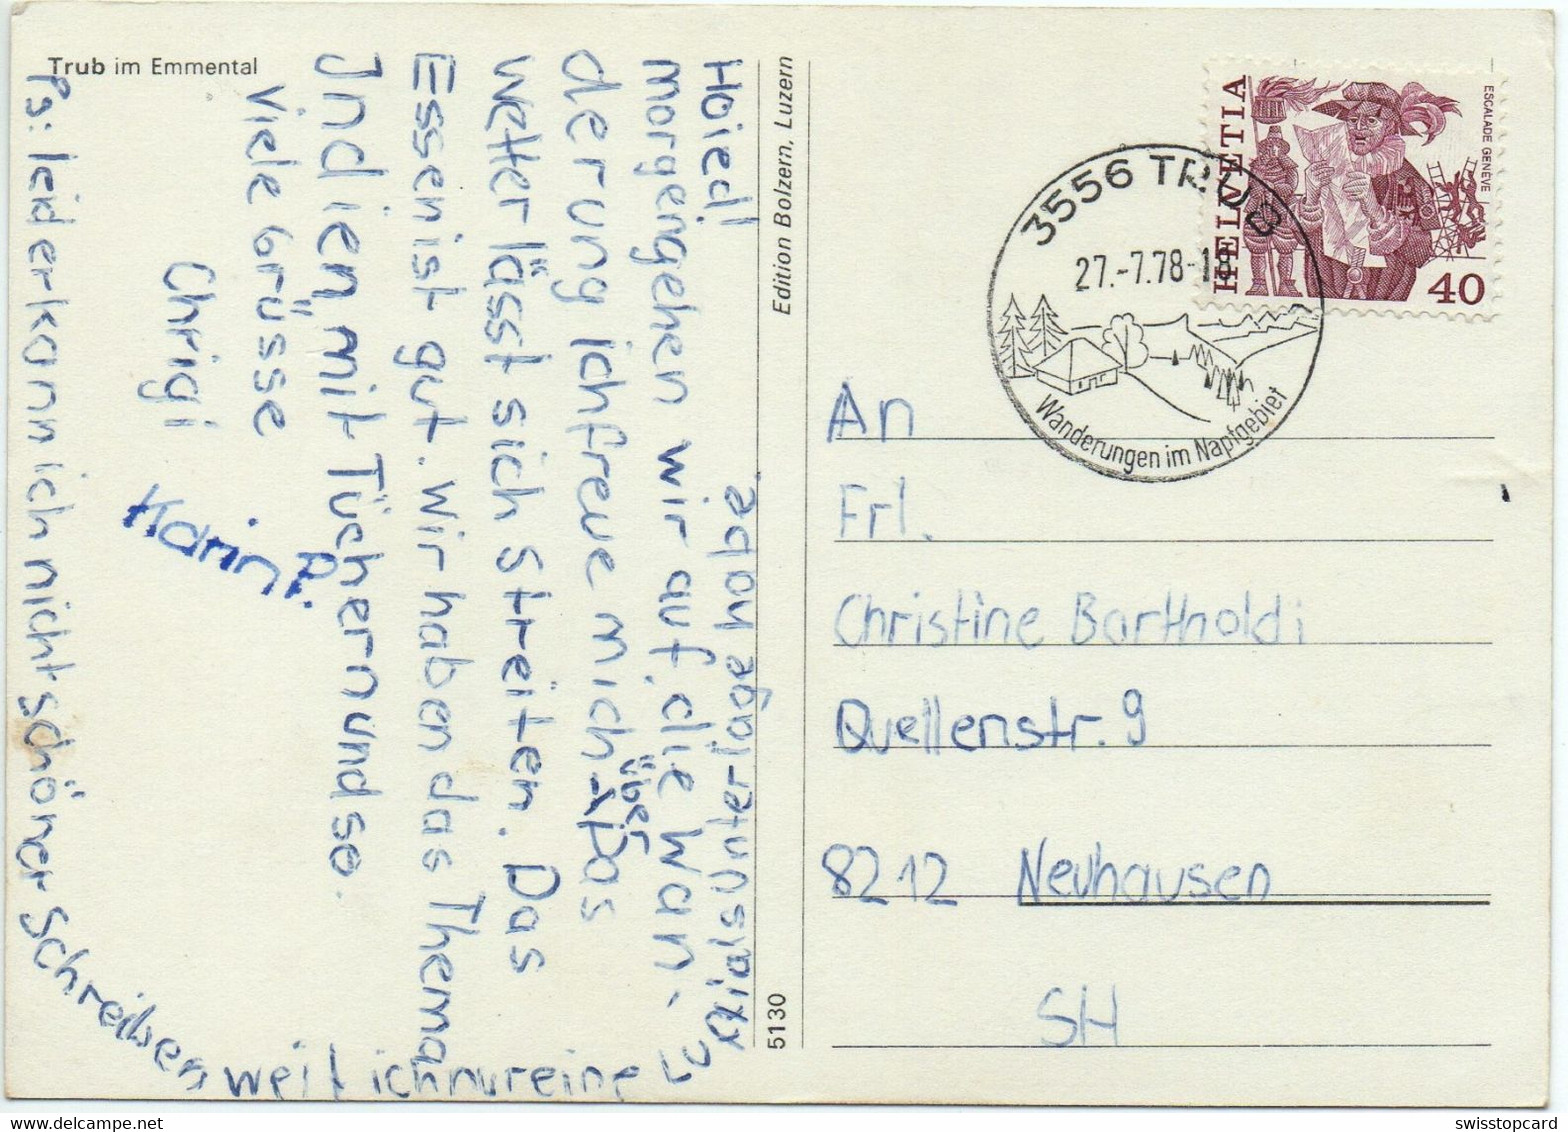 Trub im Emmental
Hoied!
morgengehen wir auf die Wan-
derung ichfreue mich über Das
Wetter lässt sich streiten. Das
Essenist gut. Wir haben das Thema
Indien, mit Tüchernundso.
Viele Grüsse
Chrigi
Karin P.
Ps: leiderkann ich nicht schöner schreiben
weil ichnureine
unterlage habe.
Edition Bolzern, Luzern
5130
3556 TRUB
27.-7.78-18
Wanderungen im Napfgebiet
HELVETIA
ESCALADE GENÈVE
40
An
Frl.
Christine Bartholdi
Quellenstr. 9
8212 Neuhausen
SH
swisstopcard